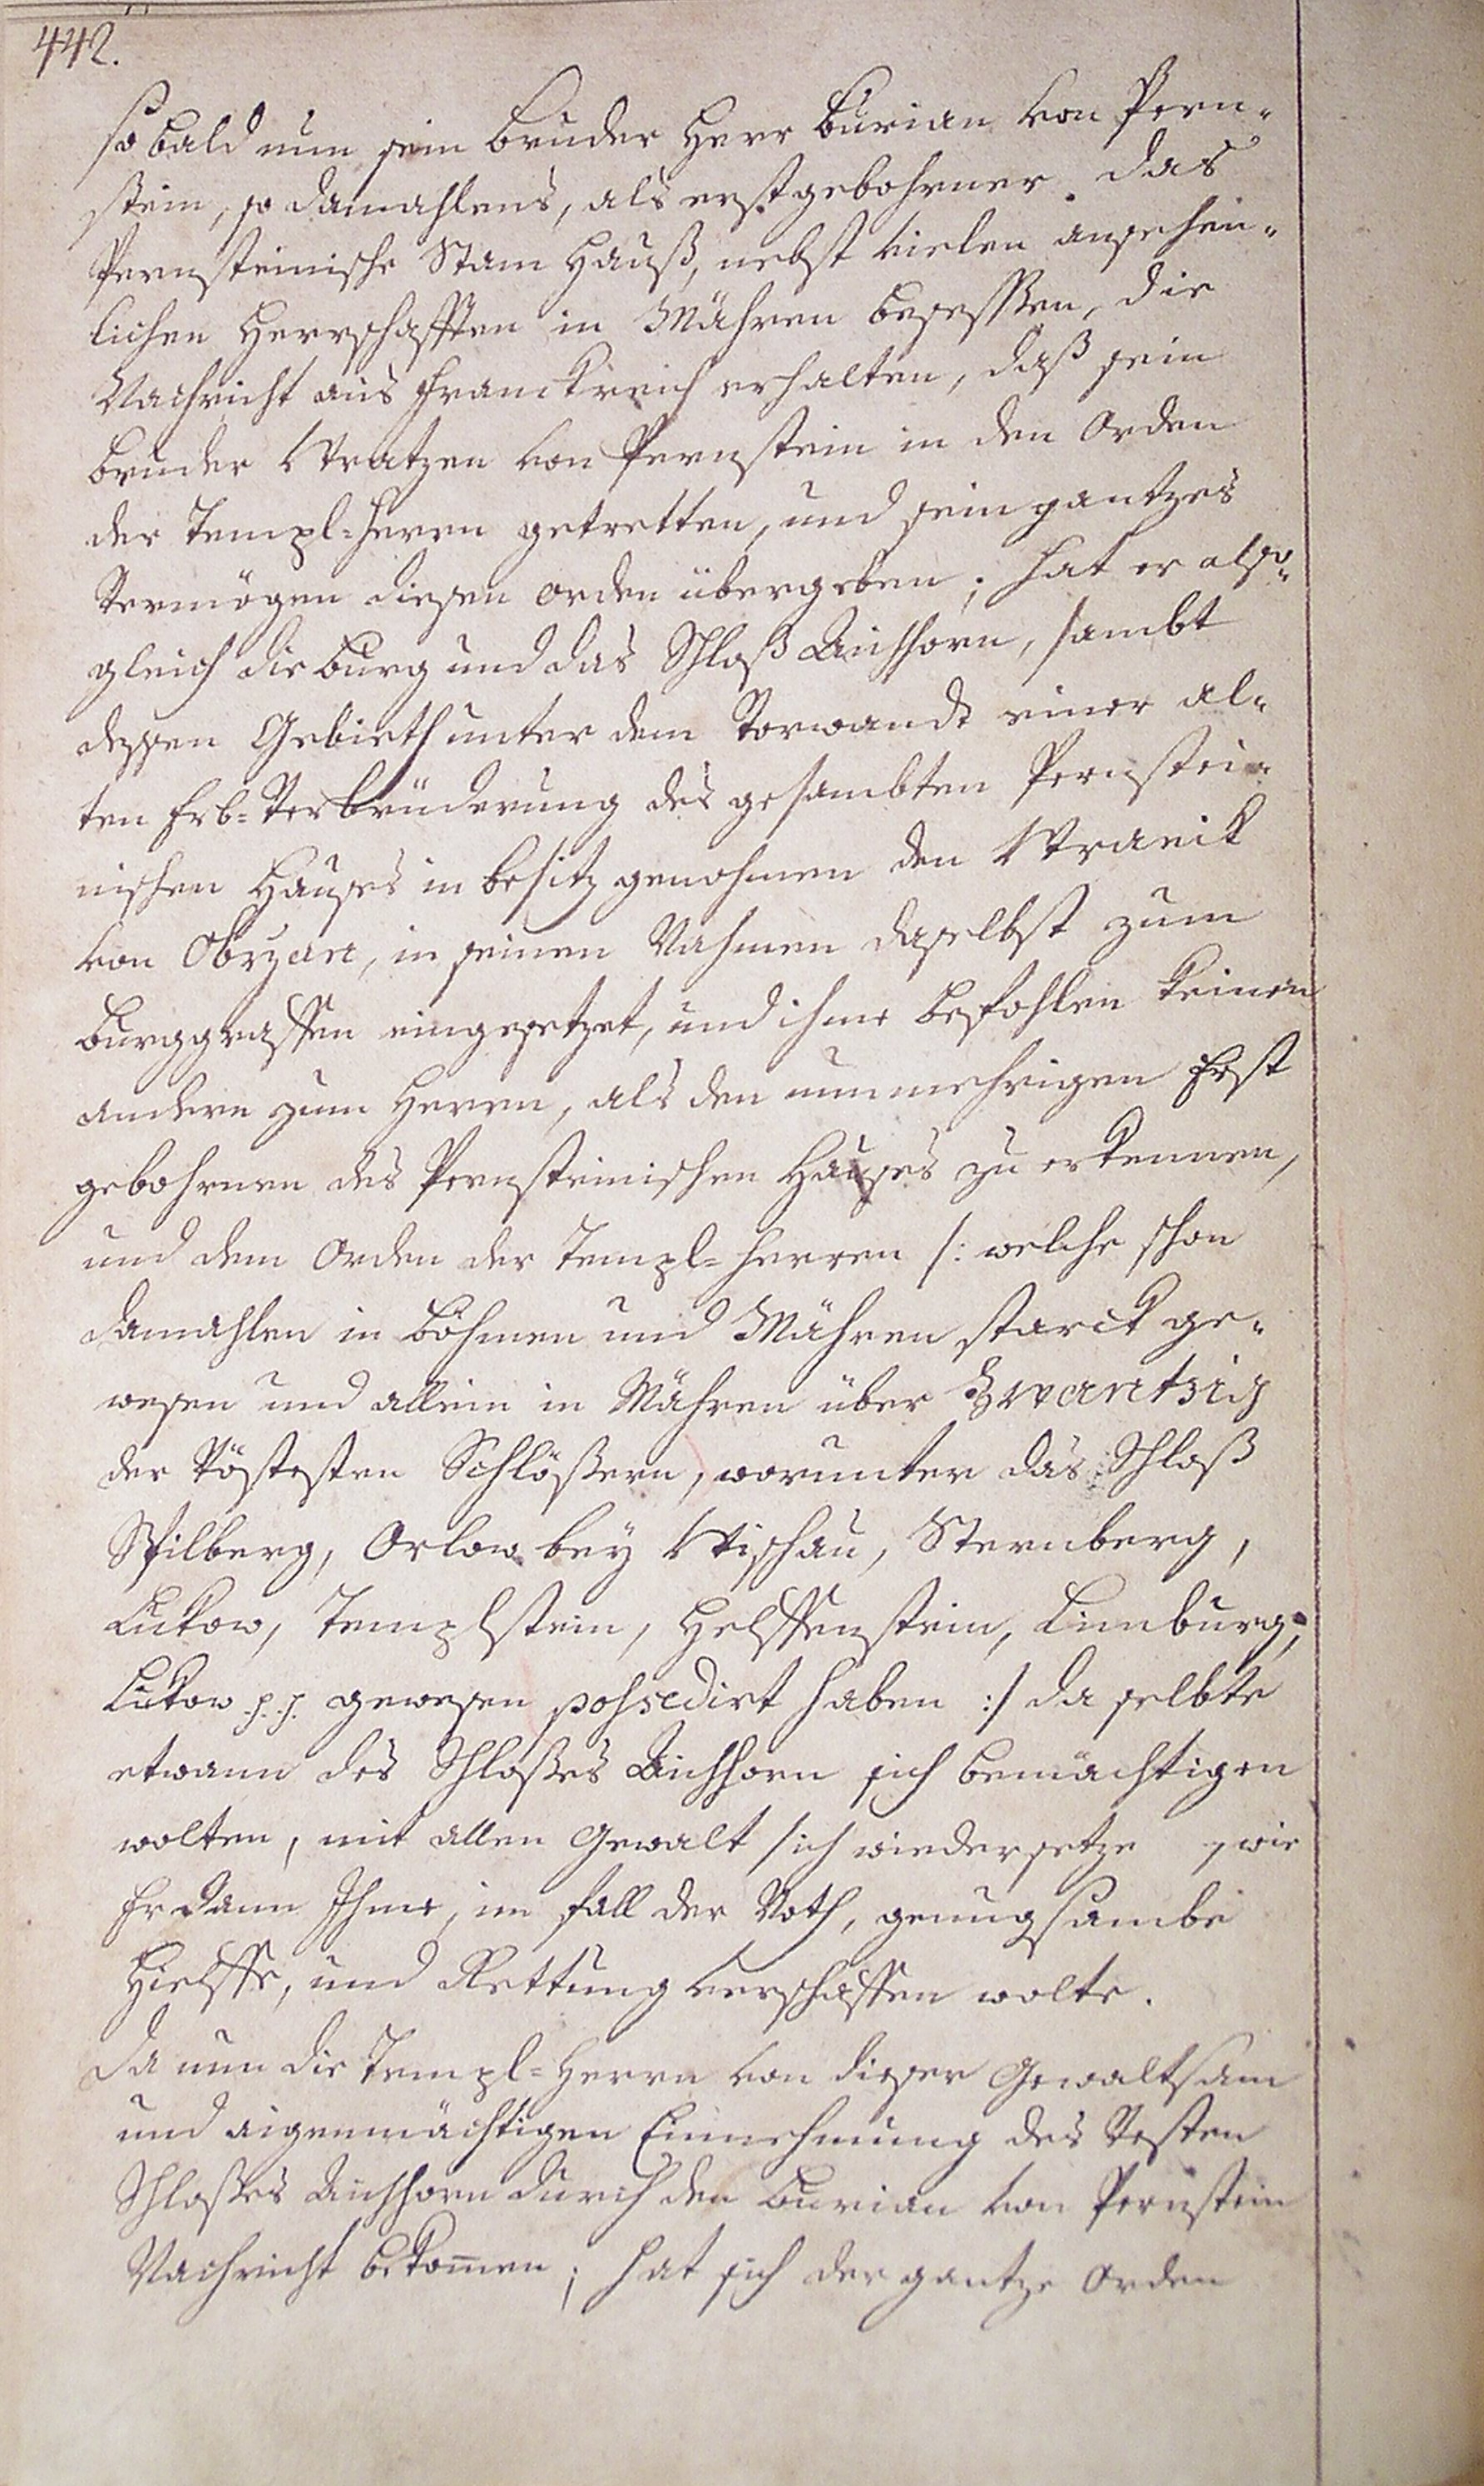 442.
so bald nun sein bruder Herr Burian von Pern-
stein, so damahlens, als erstgebohrner das
Pernsteinische Stam Hauß, nebst vielen ansehen-
lichen Herrschafften in Mähren besessen, die
Nachricht aus Franckreich erhalten, daß sein
bruder Wratzen von Pernstein in den Orden
der Templ-Herrn getretten, und sein gantzes
Vermögen diesen Orden übergeben; hat er also-
gleich die burg und das Schloß Aichhorn, sambt
dessen Gebieth unter dem Vorwandt einer al-
ten Erb-Verbrüderung des gesambten Pernstei-
nischen Hauses in besitz genohmen den Wranik
von Obrzan, in seinen Nahmen daselbst zum
burggraffen eingesetzet, und ihme befohlen keinen
andern zum Herrn, als den nunmehrigen Erst
gebohrnen des Pernsteinischen Hauses zu erkennen,
und dem Orden der Templ-Herren /: welche schon
damahlen in Böhmen und Mähren starck ge-
wesen und allein in Mähren über Zwantzig
der Vöstesten Schlößern, worunter das Schloß
Spilberg, Orlow bey Wischau, Sternberg,
Lukow, Templstein, Helffenstein, Limburg,
Lukow p. p. gewesen possedirt haben :/ da selbte
etwann des Schloßes Aichhorn sich bemächtigen
wolten, mit allen Gewalt sich wiedersetze, wie
Er dann Ihme, im fall der Noth, genugsambe
Hielffe, und Rettung verschaffen wolte.
Da nun die Templ-Herrn von dieser Gewaltsam
und aigenmächtigen Einnehmung des Vesten
Schloßes Aichhorn durch den Burian von Pernstein
Nachricht bekomen; hat sich der gantze Orden